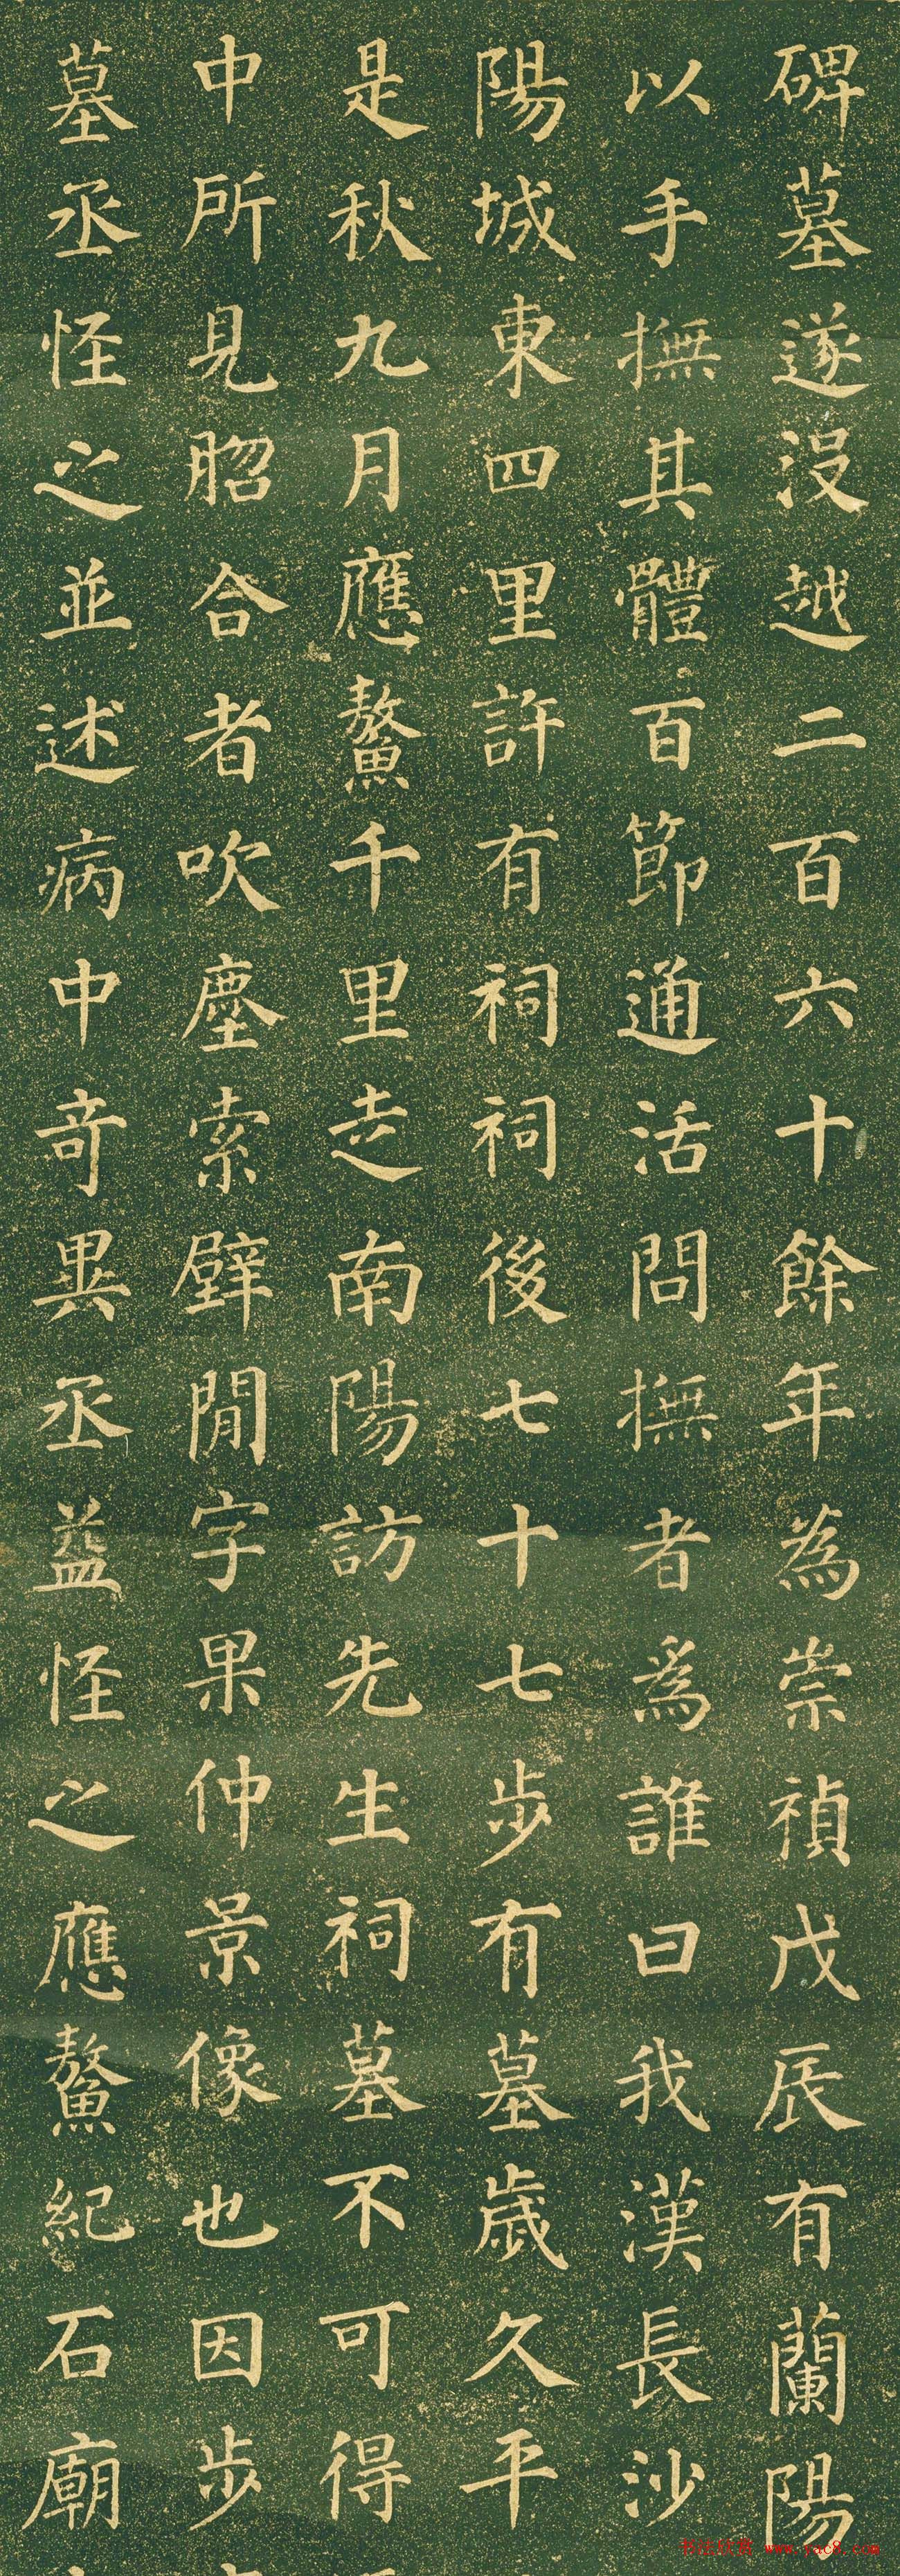 碑墓遂没越二百六十餘年為崇禎戊辰有蘭陽
以手撫其體百節通活問撫者爲誰曰我漢長沙
陽城東四里許有祠祠後七十七步有墓歲久平
是秋九月應鰲千里走南陽訪先生祠墓不可得
中所見眧合者吹塵索壁閒字果仲景像也因步
墓丞怪之並述病中竒異丞益怪之應鰲紀石廟
书法欣赏 www.yac8.com